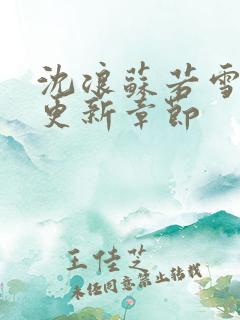 沈浪蘇若雪
更新章節
王佳芝
未经同意禁止转载